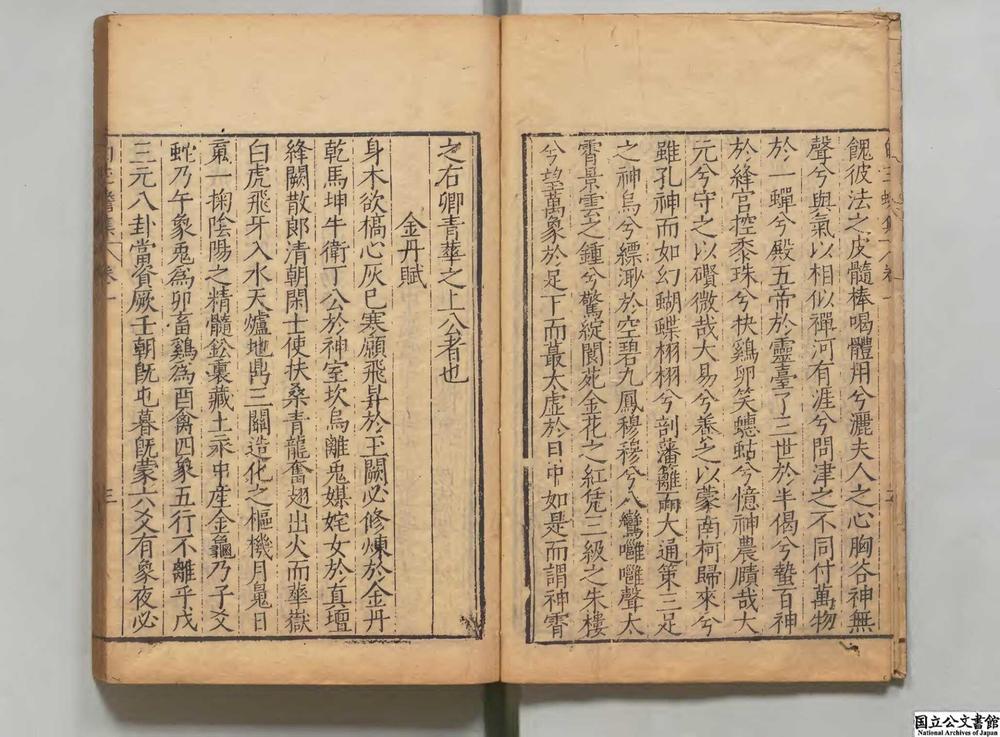 餽彼法之皮髓棒喝體用兮灑夫人之心胸谷神無
聲兮與氣以相似禪河有涯兮問津之不同付萬物
於一蟬兮殿五帝於靈臺了三世於半偈兮蟄百神
於絳官控黍珠兮抉鷄卵笑蟪蛄兮憶神農賾哉大
元兮守之以礥微哉大易兮養之以蒙南柯歸來兮
雖孔神而如幻蝴蝶栩栩兮剖藩籬兩大通策三足
之神烏兮縹渺於空碧九鳳穆穆兮八鸞雝雝聲太
霄景雲之鍾兮驚綻閬苑金花之紅凭三級之朱樓
兮望萬象於足下而蕞太虛於目中如是而謂神霄
之右卿青華之上公者也
金丹賦
身木欲槁心灰已寒願飛昇於玉闕必修煉於金丹
乾馬坤牛衛丁公於神室坎烏離兎媒姹女於真壇
絳闕散郎清朝閑士使扶桑青龍奮翅出火而華嶽
白虎飛牙入水天爐地鼎三關造化之樞機月鳧日
一掬陰陽之精髓鈆裏藏土汞中産金龜乃子爻
蛇乃午象兎為卯畜鷄為酉禽四象五行不離乎戊
三元八卦當資厥壬朝旣屯暮旣蒙六爻有象夜必
卷一
三
国立公文書館
National Archives of Japan